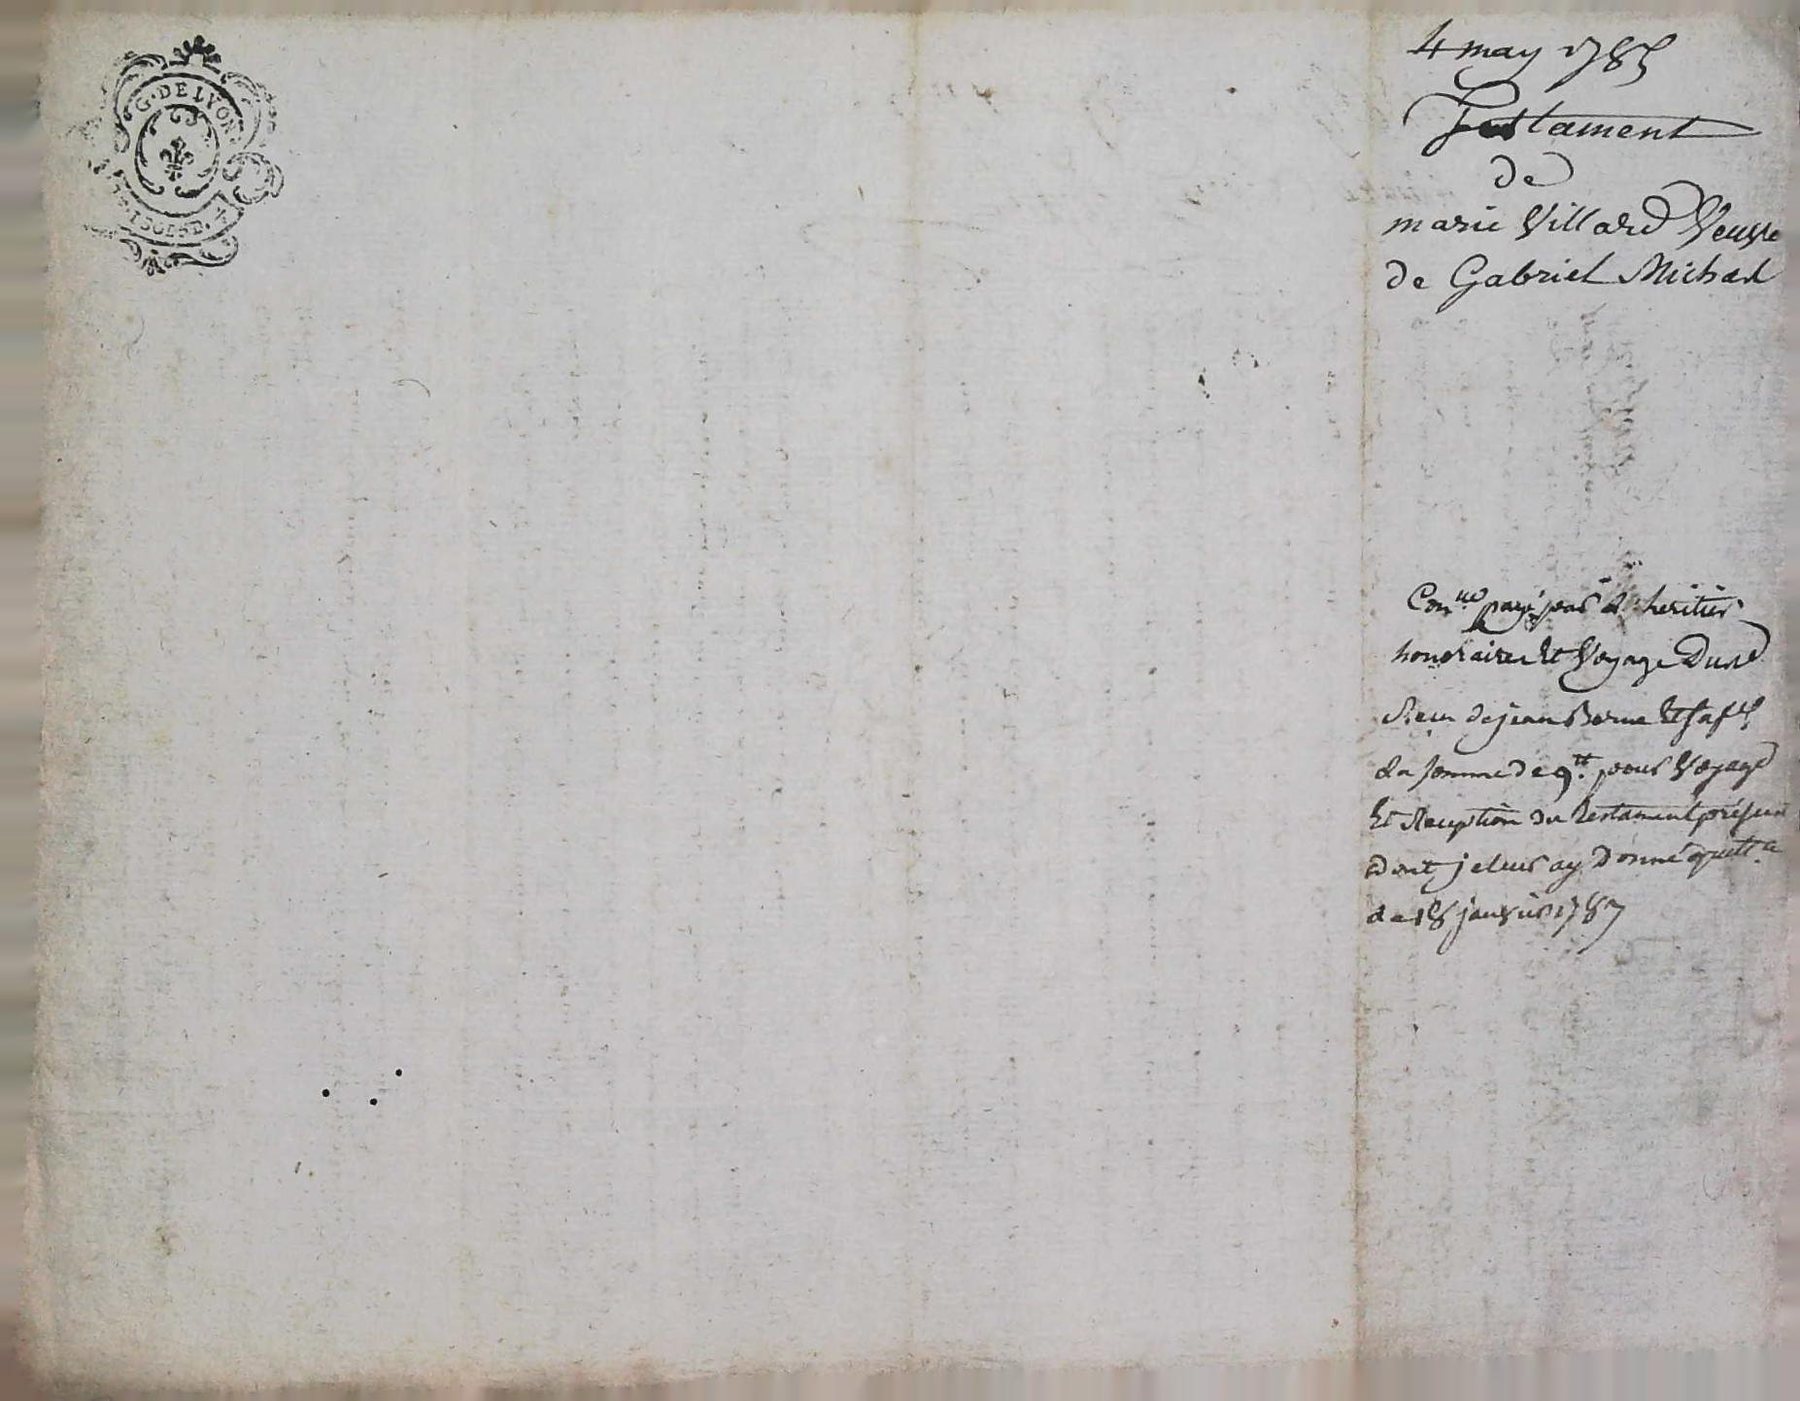 G. DE LYON
1 SOL 5 D.
4 may 1785
Testament
de
marie Villard Veuve
de Gabriel Michel
Con.lle payé par l'heritier
honoraires Et Voyage Dusd
Reçu de jean Et sa f.e
La somme de 9.tt pour Voyage
Et Reception du testament présent
dont je leur ay Donné quitt.ce
Le 18 janvier 1787